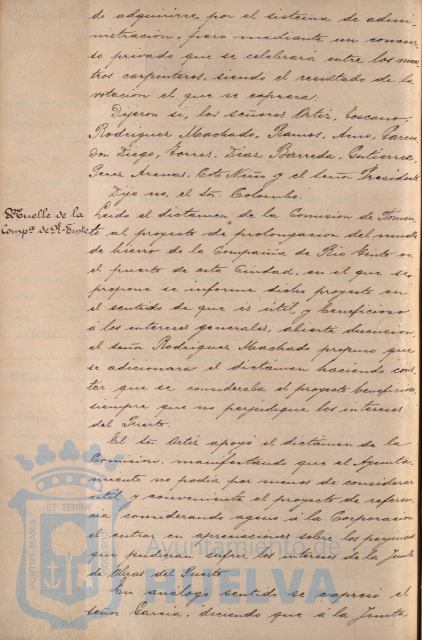 de adquirirse por el sistema de admi-
nistracion, pero mediante un concur-
so privado que se celebrará entre los maes-
tros carpinteros, siendo el resultado de la
votación el que se expresa:
Dijeron si, los señores Ortiz, Toscano,
Rodriguez Machado, Ramos, Amo, Garcia
Don Diego, Torres, Diaz Barreda, Gutierrez,
Perez Arenas, Coto Niño y el señor Presidente
Dijo no, el Sor. Colombo.
Muelle de la
Compª de R-Tinto
Leido el dictamen de la Comision de Fomen-
to al proyecto de prolongacion del muelle
de hierro de la Compañia de Rio Tinto en
el puerto de esta Ciudad, en el que se
propone se informe dicho proyecto en
el sentido de que es útil y beneficioso
á los intereses generales; abierta discusion,
el señor Rodriguez Machado propuso que
se adicionara el dictámen haciendo cons-
tar que se consideraba el proyecto beneficioso,
siempre que no perjudique los intereses
del Puerto.
El Sor. Ortiz apoyó el dictámen de la
Comision, manifestando que el Ayunta-
miento no podia por menos de considerar
útil y conveniente el proyecto de referen-
cia considerando ageno á la Corporacion
el entrar en apreciaciones sobre los perjuicios
que pudieran sufrir los intereses de la Junta
de Obras del Puerto.
En análogo sentido se expresó el
señor Garcia, diciendo que á la Junta
PORTUS MARIS ET TERRÆ CUSTODIA
Ayuntamiento de
HUELVA